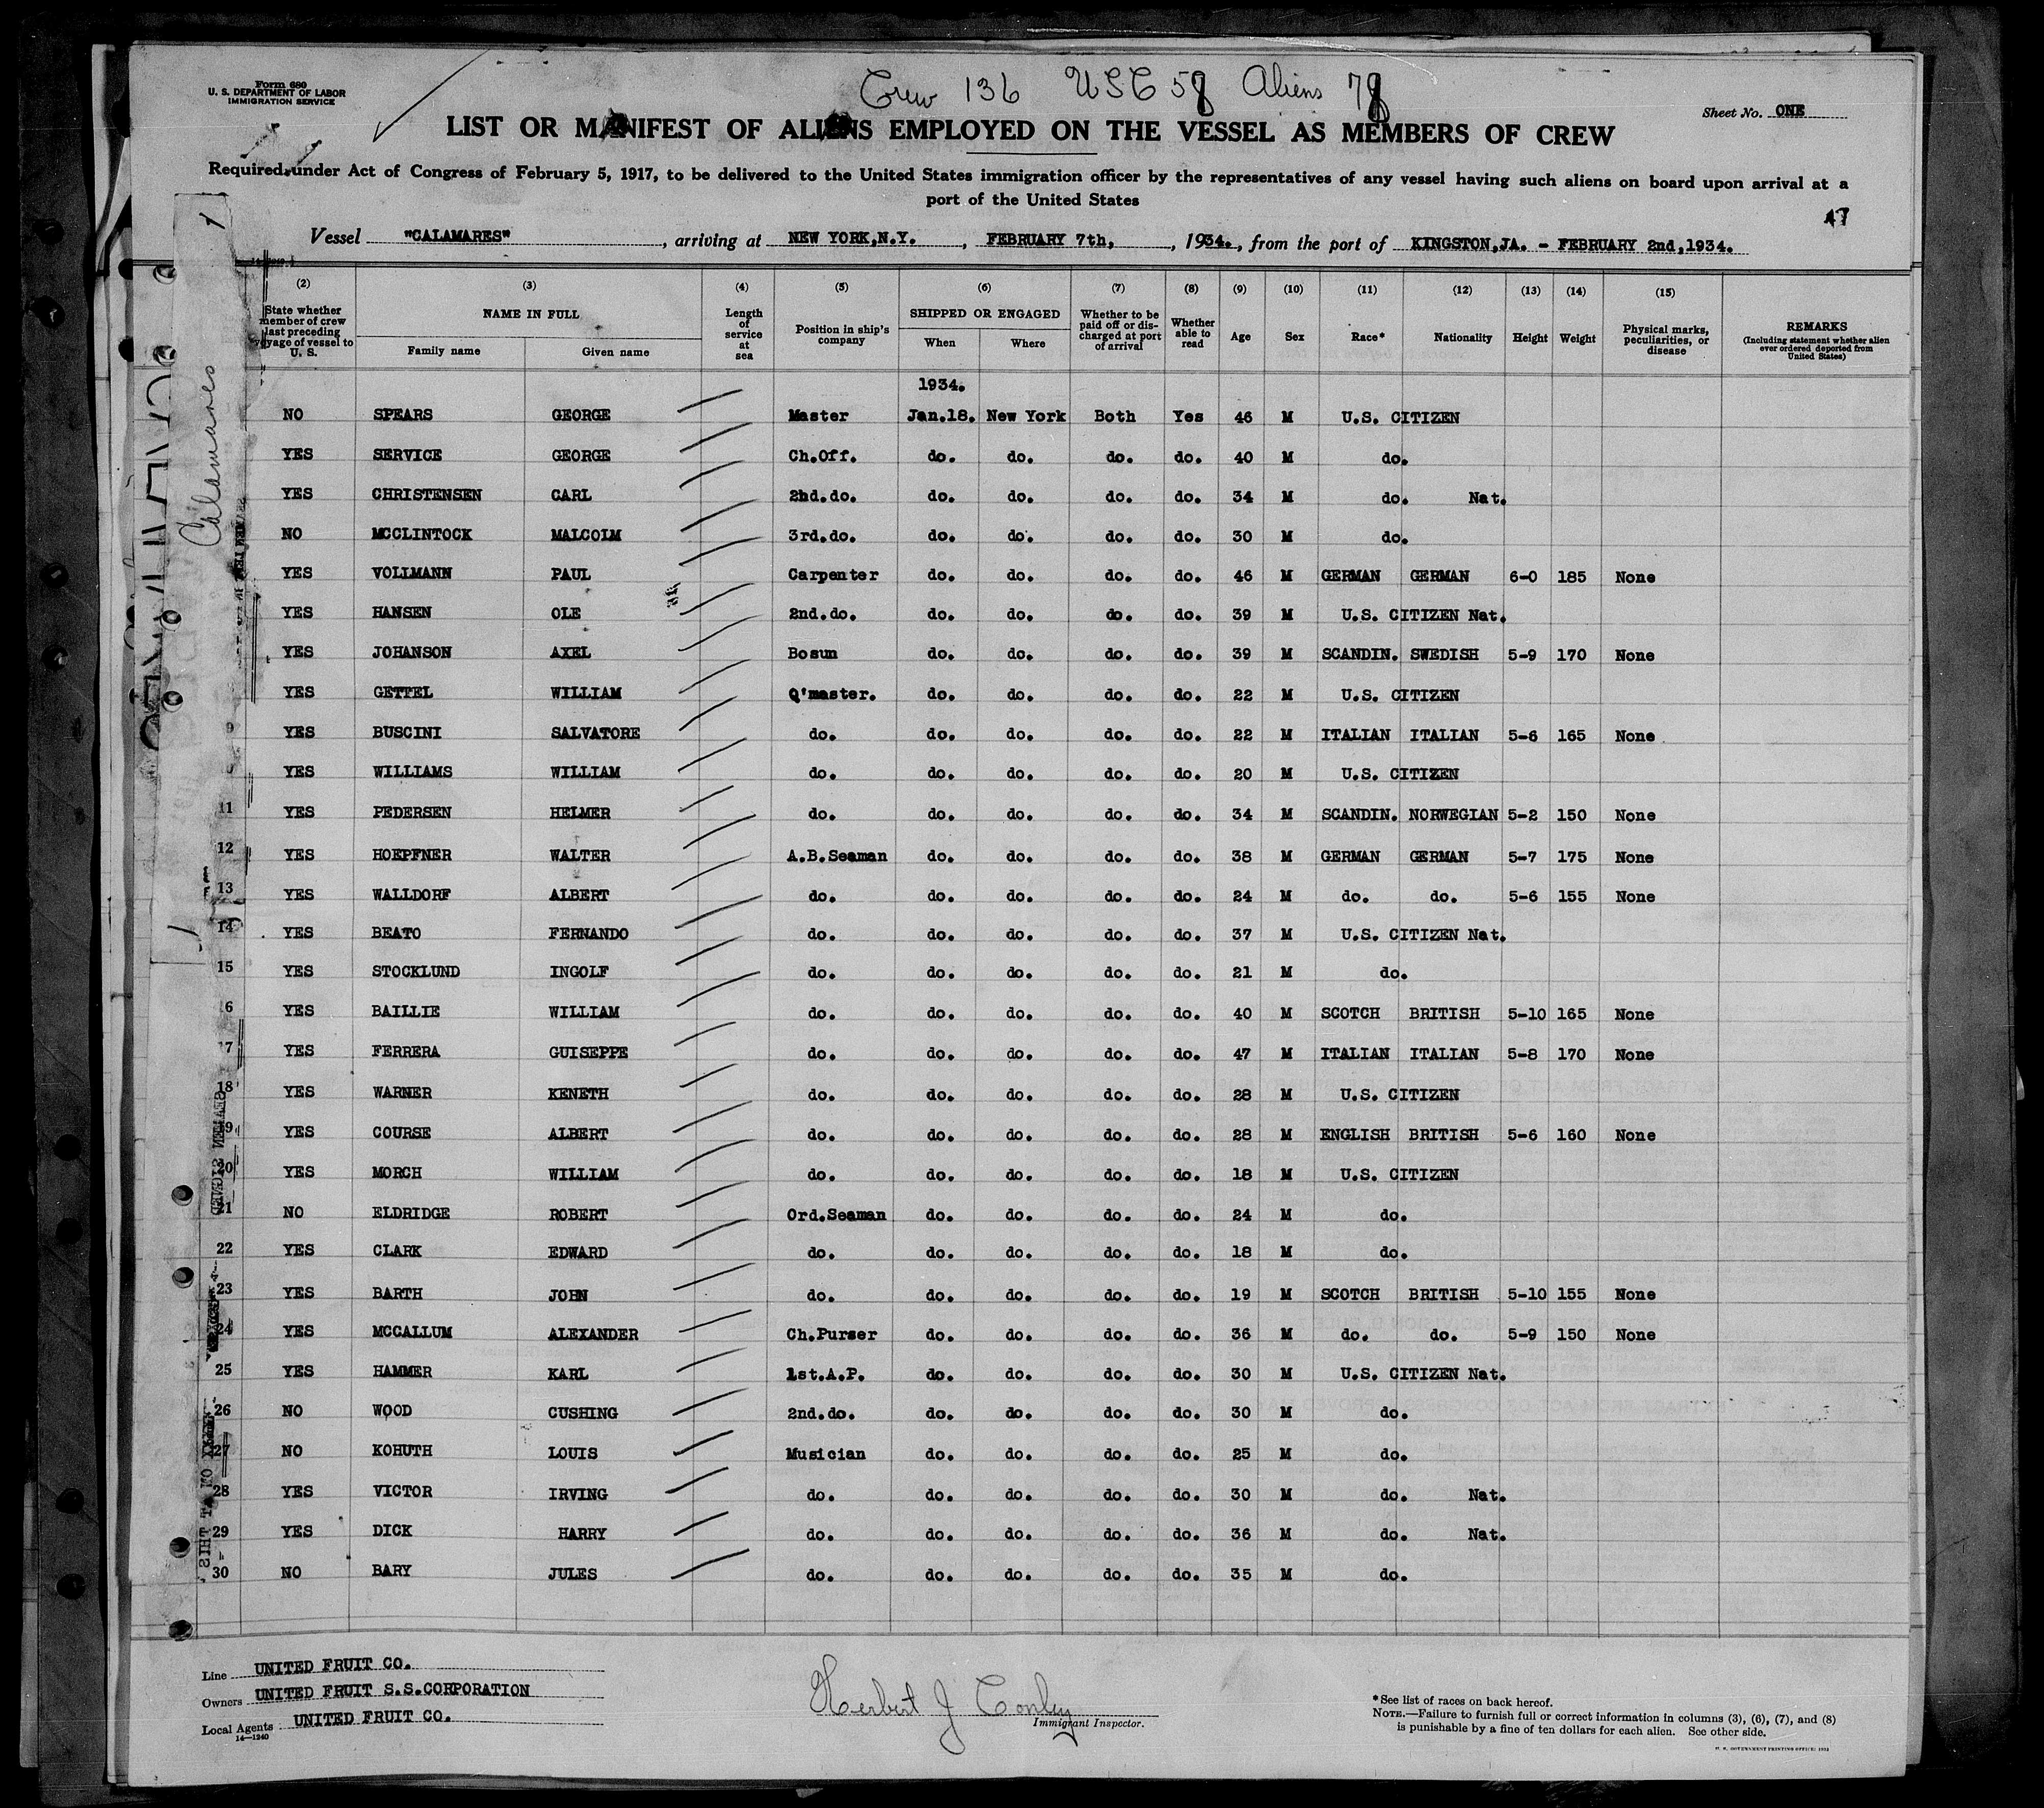 Form 680
U. S. DEPARTMENT OF LABOR
IMMIGRATION SERVICE
Crew 136 USC 58 Aliens 78
Sheet No. ONE
LIST OR MANIFEST OF ALIENS EMPLOYED ON THE VESSEL AS MEMBERS OF CREW
Required under Act of Congress of February 5, 1917, to be delivered to the United States immigration officer by the representatives of any vessel having such aliens on board upon arrival at a
port of the United States
47
Vessel "CALAMARES", arriving at NEW YORK,N.Y., FEBRUARY 7th, , 1934., from the port of KINGSTON,JA. - FEBRUARY 2nd,1934.
Calamares
(2) (3) (4) (5) (6) (7) (8) (9) (10) (11) (12) (13) (14) (15)
State whether member of crew last preceding voyage of vessel to U. S. NAME IN FULL Family name Given name Length of service at sea Position in ship's company SHIPPED OR ENGAGED When Where Whether to be paid off or discharged at port of arrival Whether able to read Age Sex Race* Nationality Height Weight Physical marks, peculiarities, or disease REMARKS (Including statement whether alien ever ordered deported from United States)
1934.
NO SPEARS GEORGE Master Jan.18. New York Both Yes 46 M U.S. CITIZEN
YES SERVICE GEORGE Ch.Off. do. do. do. do. 40 M do.
YES CHRISTENSEN CARL 2nd.do. do. do. do. do. 34 M do. Nat.
NO MCCLINTOCK MALCOLM 3rd.do. do. do. do. do. 30 M do.
YES VOLLMANN PAUL Carpenter do. do. do. do. 46 M GERMAN GERMAN 6-0 185 None
YES HANSEN OLE 2nd.do. do. do. do. do. 39 M U.S. CITIZEN Nat.
YES JOHANSON AXEL Bosun do. do. do. do. 39 M SCANDIN. SWEDISH 5-9 170 None
YES GETTEL WILLIAM Q'master. do. do. do. do. 22 M U.S. CITIZEN
9 YES BUSCINI SALVATORE do. do. do. do. do. 22 M ITALIAN ITALIAN 5-6 165 None
YES WILLIAMS WILLIAM do. do. do. do. do. 20 M U.S. CITIZEN
11 YES PEDERSEN HELMER do. do. do. do. do. 34 M SCANDIN. NORWEGIAN 5-2 150 None
12 YES HOEPFNER WALTER A.B.Seaman do. do. do. do. 38 M GERMAN GERMAN 5-7 175 None
13 YES WALLDORF ALBERT do. do. do. do. do. 24 M do. do. 5-6 155 None
14 YES BEATO FERNANDO do. do. do. do. do. 37 M U.S. CITIZEN Nat.
15 YES STOCKLUND INGOLF do. do. do. do. do. 21 M do.
6 YES BAILLIE WILLIAM do. do. do. do. do. 40 M SCOTCH BRITISH 5-10 165 None
17 YES FERRERA GUISEPPE do. do. do. do. do. 47 M ITALIAN ITALIAN 5-8 170 None
18 YES WARNER KENETH do. do. do. do. do. 28 M U.S. CITIZEN
19 YES COURSE ALBERT do. do. do. do. do. 28 M ENGLISH BRITISH 5-6 160 None
20 YES MORCH WILLIAM do. do. do. do. do. 18 M U.S. CITIZEN
21 NO ELDRIDGE ROBERT Ord.Seaman do. do. do. do. 24 M do.
22 YES CLARK EDWARD do. do. do. do. do. 18 M do.
23 YES BARTH JOHN do. do. do. do. do. 19 M SCOTCH BRITISH 5-10 155 None
24 YES MCCALLUM ALEXANDER Ch.Purser do. do. do. do. 36 M do. do. 5-9 150 None
25 YES HAMMER KARL 1st.A.P. do. do. do. do. 30 M U.S. CITIZEN Nat.
26 NO WOOD CUSHING 2nd.do. do. do. do. do. 30 M do.
27 NO KOHUTH LOUIS Musician do. do. do. do. 25 M do.
28 YES VICTOR IRVING do. do. do. do. do. 30 M do. Nat.
29 YES DICK HARRY do. do. do. do. do. 36 M do. Nat.
30 NO BARY JULES do. do. do. do. do. 35 M do.
Line UNITED FRUIT CO.
Owners UNITED FRUIT S.S.CORPORATION
Local Agents UNITED FRUIT CO.
14—1240
Herbert J Conley
Immigrant Inspector.
*See list of races on back hereof.
NOTE.—Failure to furnish full or correct information in columns (3), (6), (7), and (8)
is punishable by a fine of ten dollars for each alien. See other side.